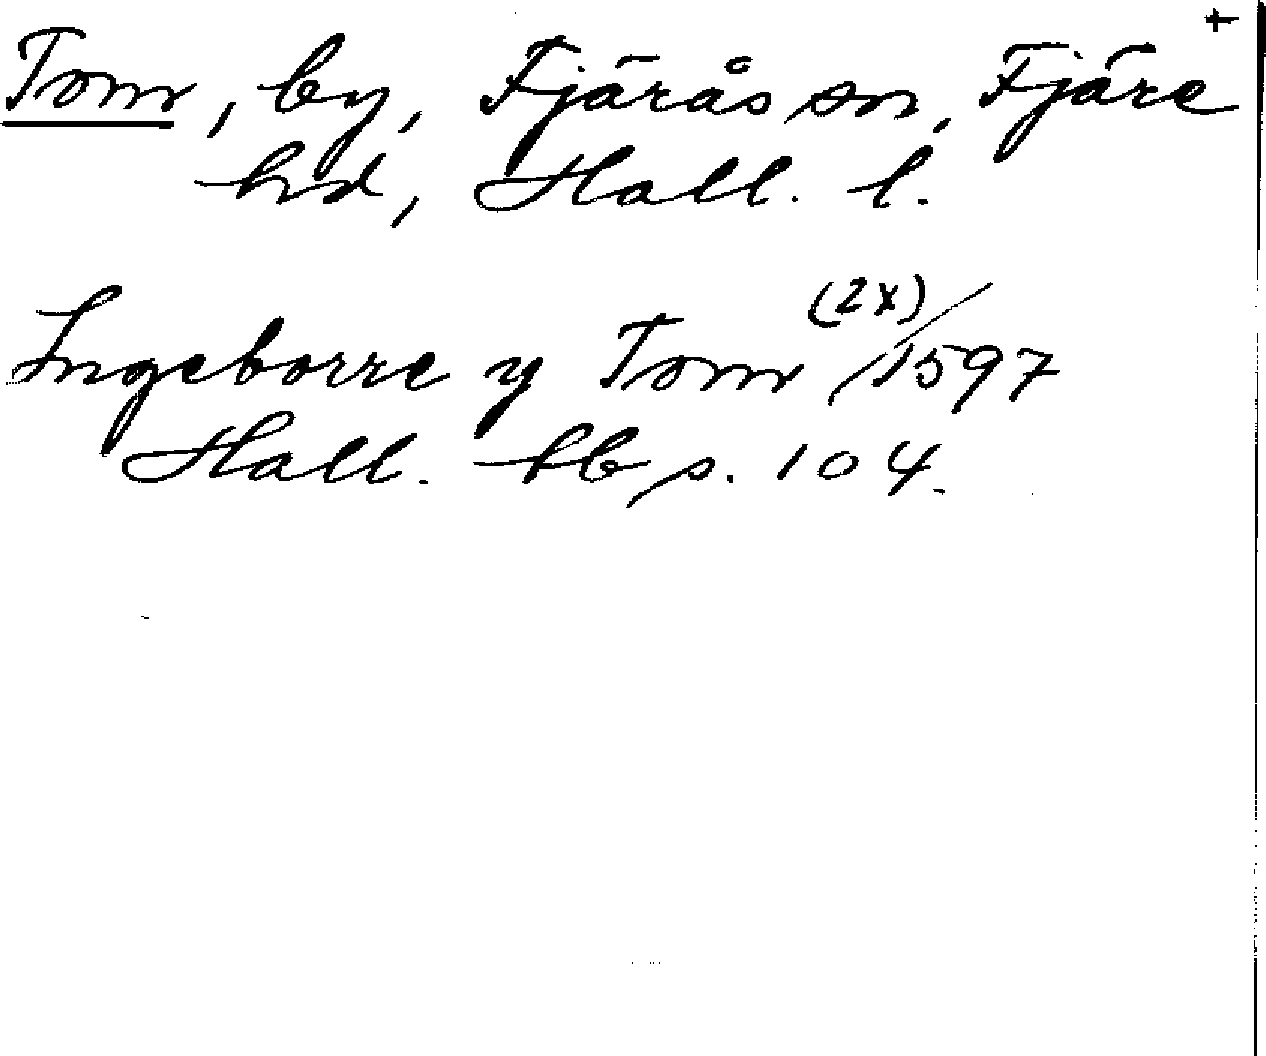 +
Tom, by, Fjärås sn, Fjäre
hd, Hall. l.
Ingeborre y Tom (2x) 1597
Hall. bb s. 104.